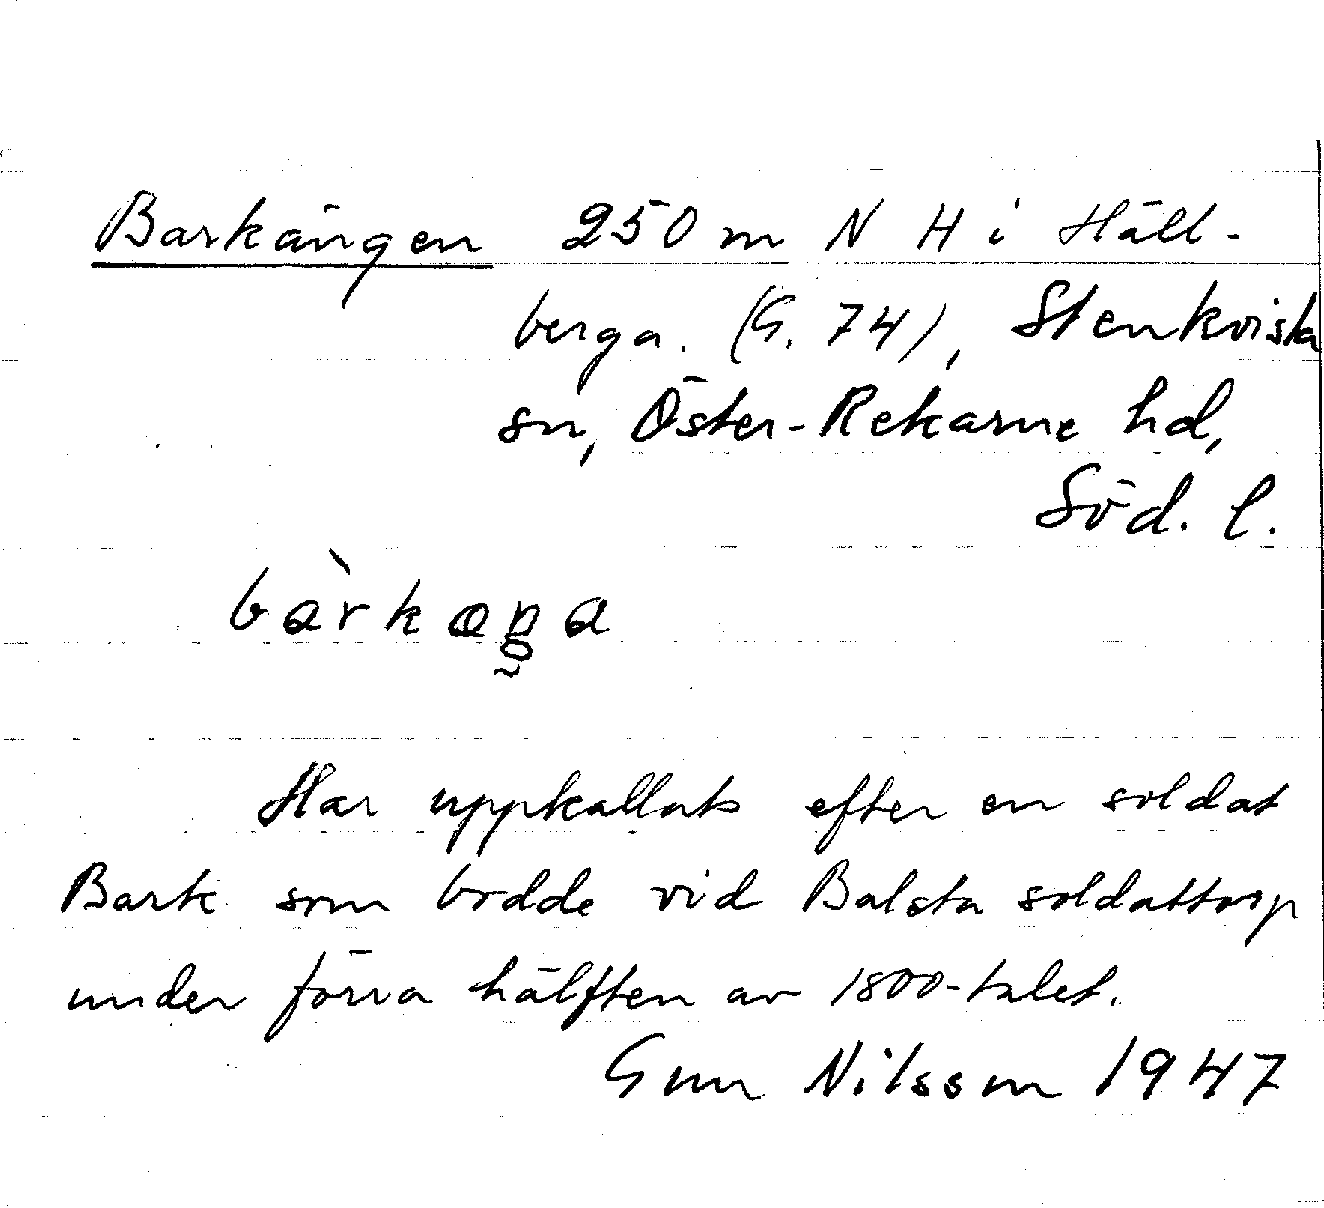 Barkängen 250 m N H i Häll-
berga. (G. 74), Stenkvista
sn, Öster-Rekarne hd,
Söd. l.
Har uppkallats efter en soldat
Bark som bodde vid Balsta soldattorp
under förra hälften av 1800-talet.
Gun Nilsson 1947